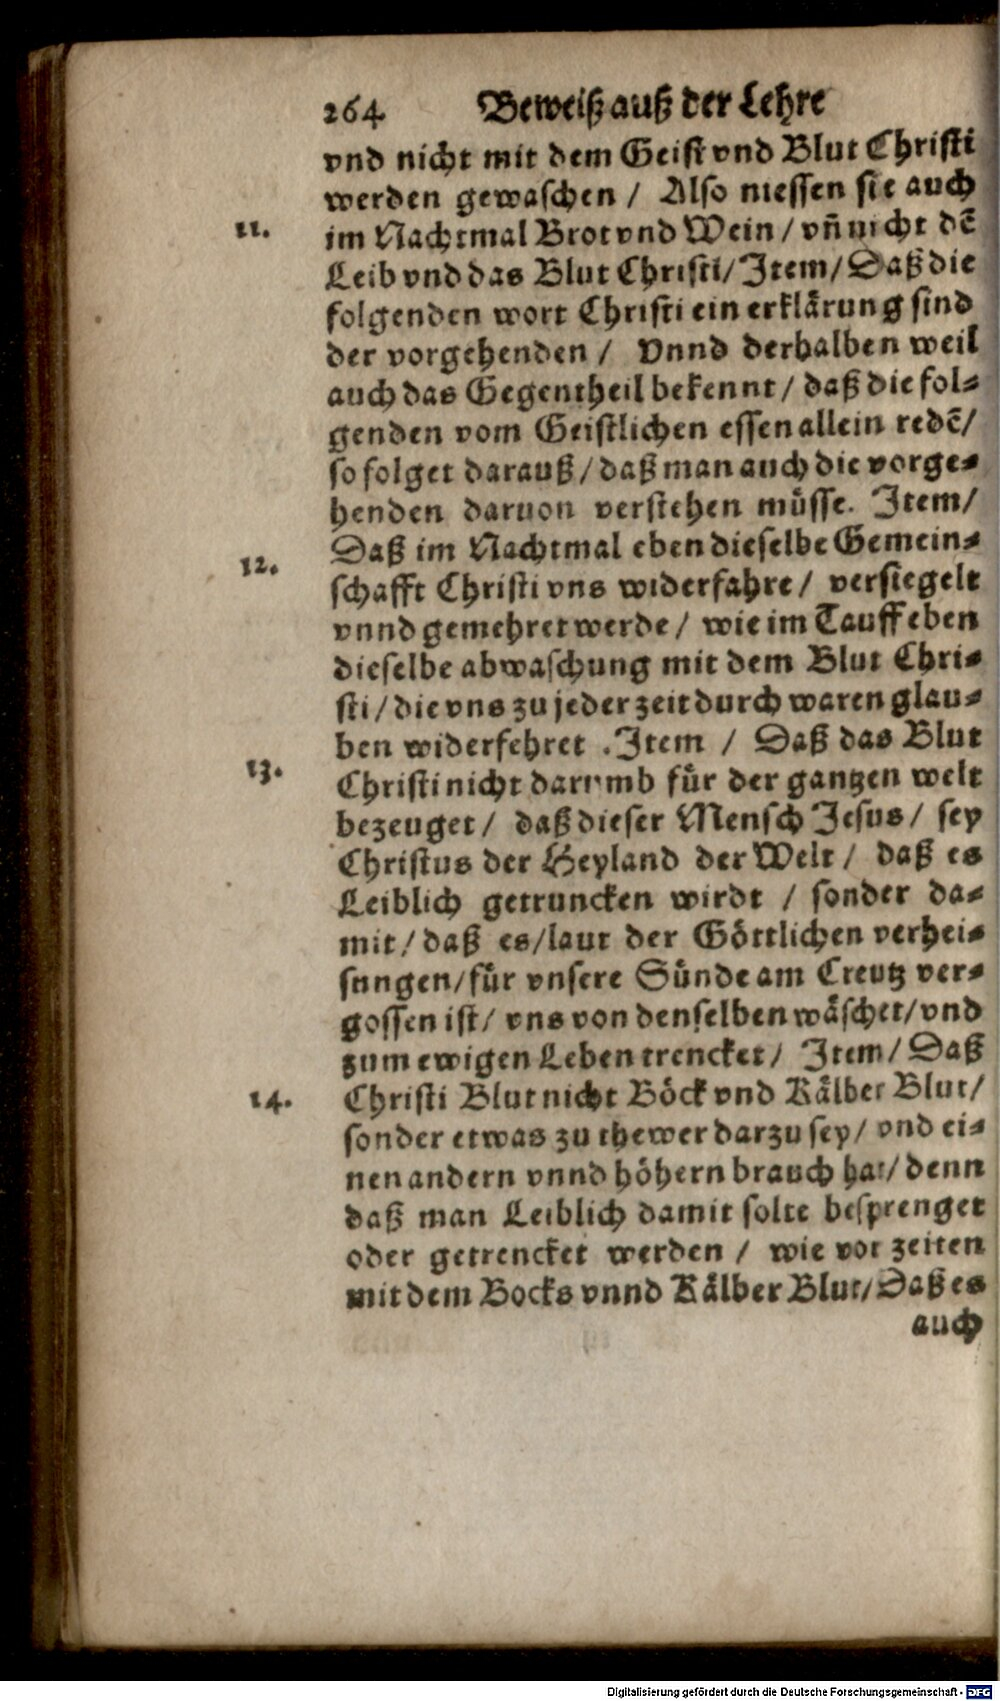 264 Beweiß auß der Lehre
vnd nicht mit dem Geist vnd Blut Christi
werden gewaschen / Also niessen sie auch
11. im Nachtmal Brot vnd Wein / vn̄ nicht dē
Leib vnd das Blut Christi / Item / Daß die
folgenden wort Christi ein erklärung sind
der vorgehenden / Vnnd derhalben weil
auch das Gegentheil bekennt / daß die fol⸗
genden vom Geistlichen essen allein redē /
so folget darauß / daß man auch die vorge⸗
henden daruon verstehen müsse. Item /
12. Daß im Nachtmal eben dieselbe Gemein⸗
schafft Christi vns widerfahre / versiegelt
vnnd gemehret werde / wie im Tauff eben
dieselbe abwaschung mit dem Blut Chri⸗
sti / die vns zu jeder zeit durch waren glau⸗
ben widerfehret . Item / Daß das Blut
13. Christi nicht darumb für der gantzen welt
bezeuget / daß dieser Mensch Jesus / sey
Christus der Heyland der Welt / daß es
Leiblich getruncken wirdt / sonder da⸗
mit / daß es / laut der Göttlichen verhei⸗
sungen / für vnsere Sünde am Creutz ver⸗
gossen ist / vns von denselben wäschet / vnd
zum ewigen Leben trencket / Item / Daß
14. Christi Blut nicht Böck vnd Kälber Blut /
sonder etwas zu thewer darzu sey / vnd ei⸗
nen andern vnnd höhern brauch hat / denn
daß man Leiblich damit solte besprenget
oder getrencket werden / wie vor zeiten
mit dem Bocks vnnd Kälber Blut / Daß es
auch
Digitalisierung gefördert durch die Deutsche Forschungsgemeinschaft - DFG